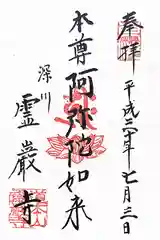 奉拝
平成二十年七月三日
本尊阿弥陀如来
深川
霊巖寺